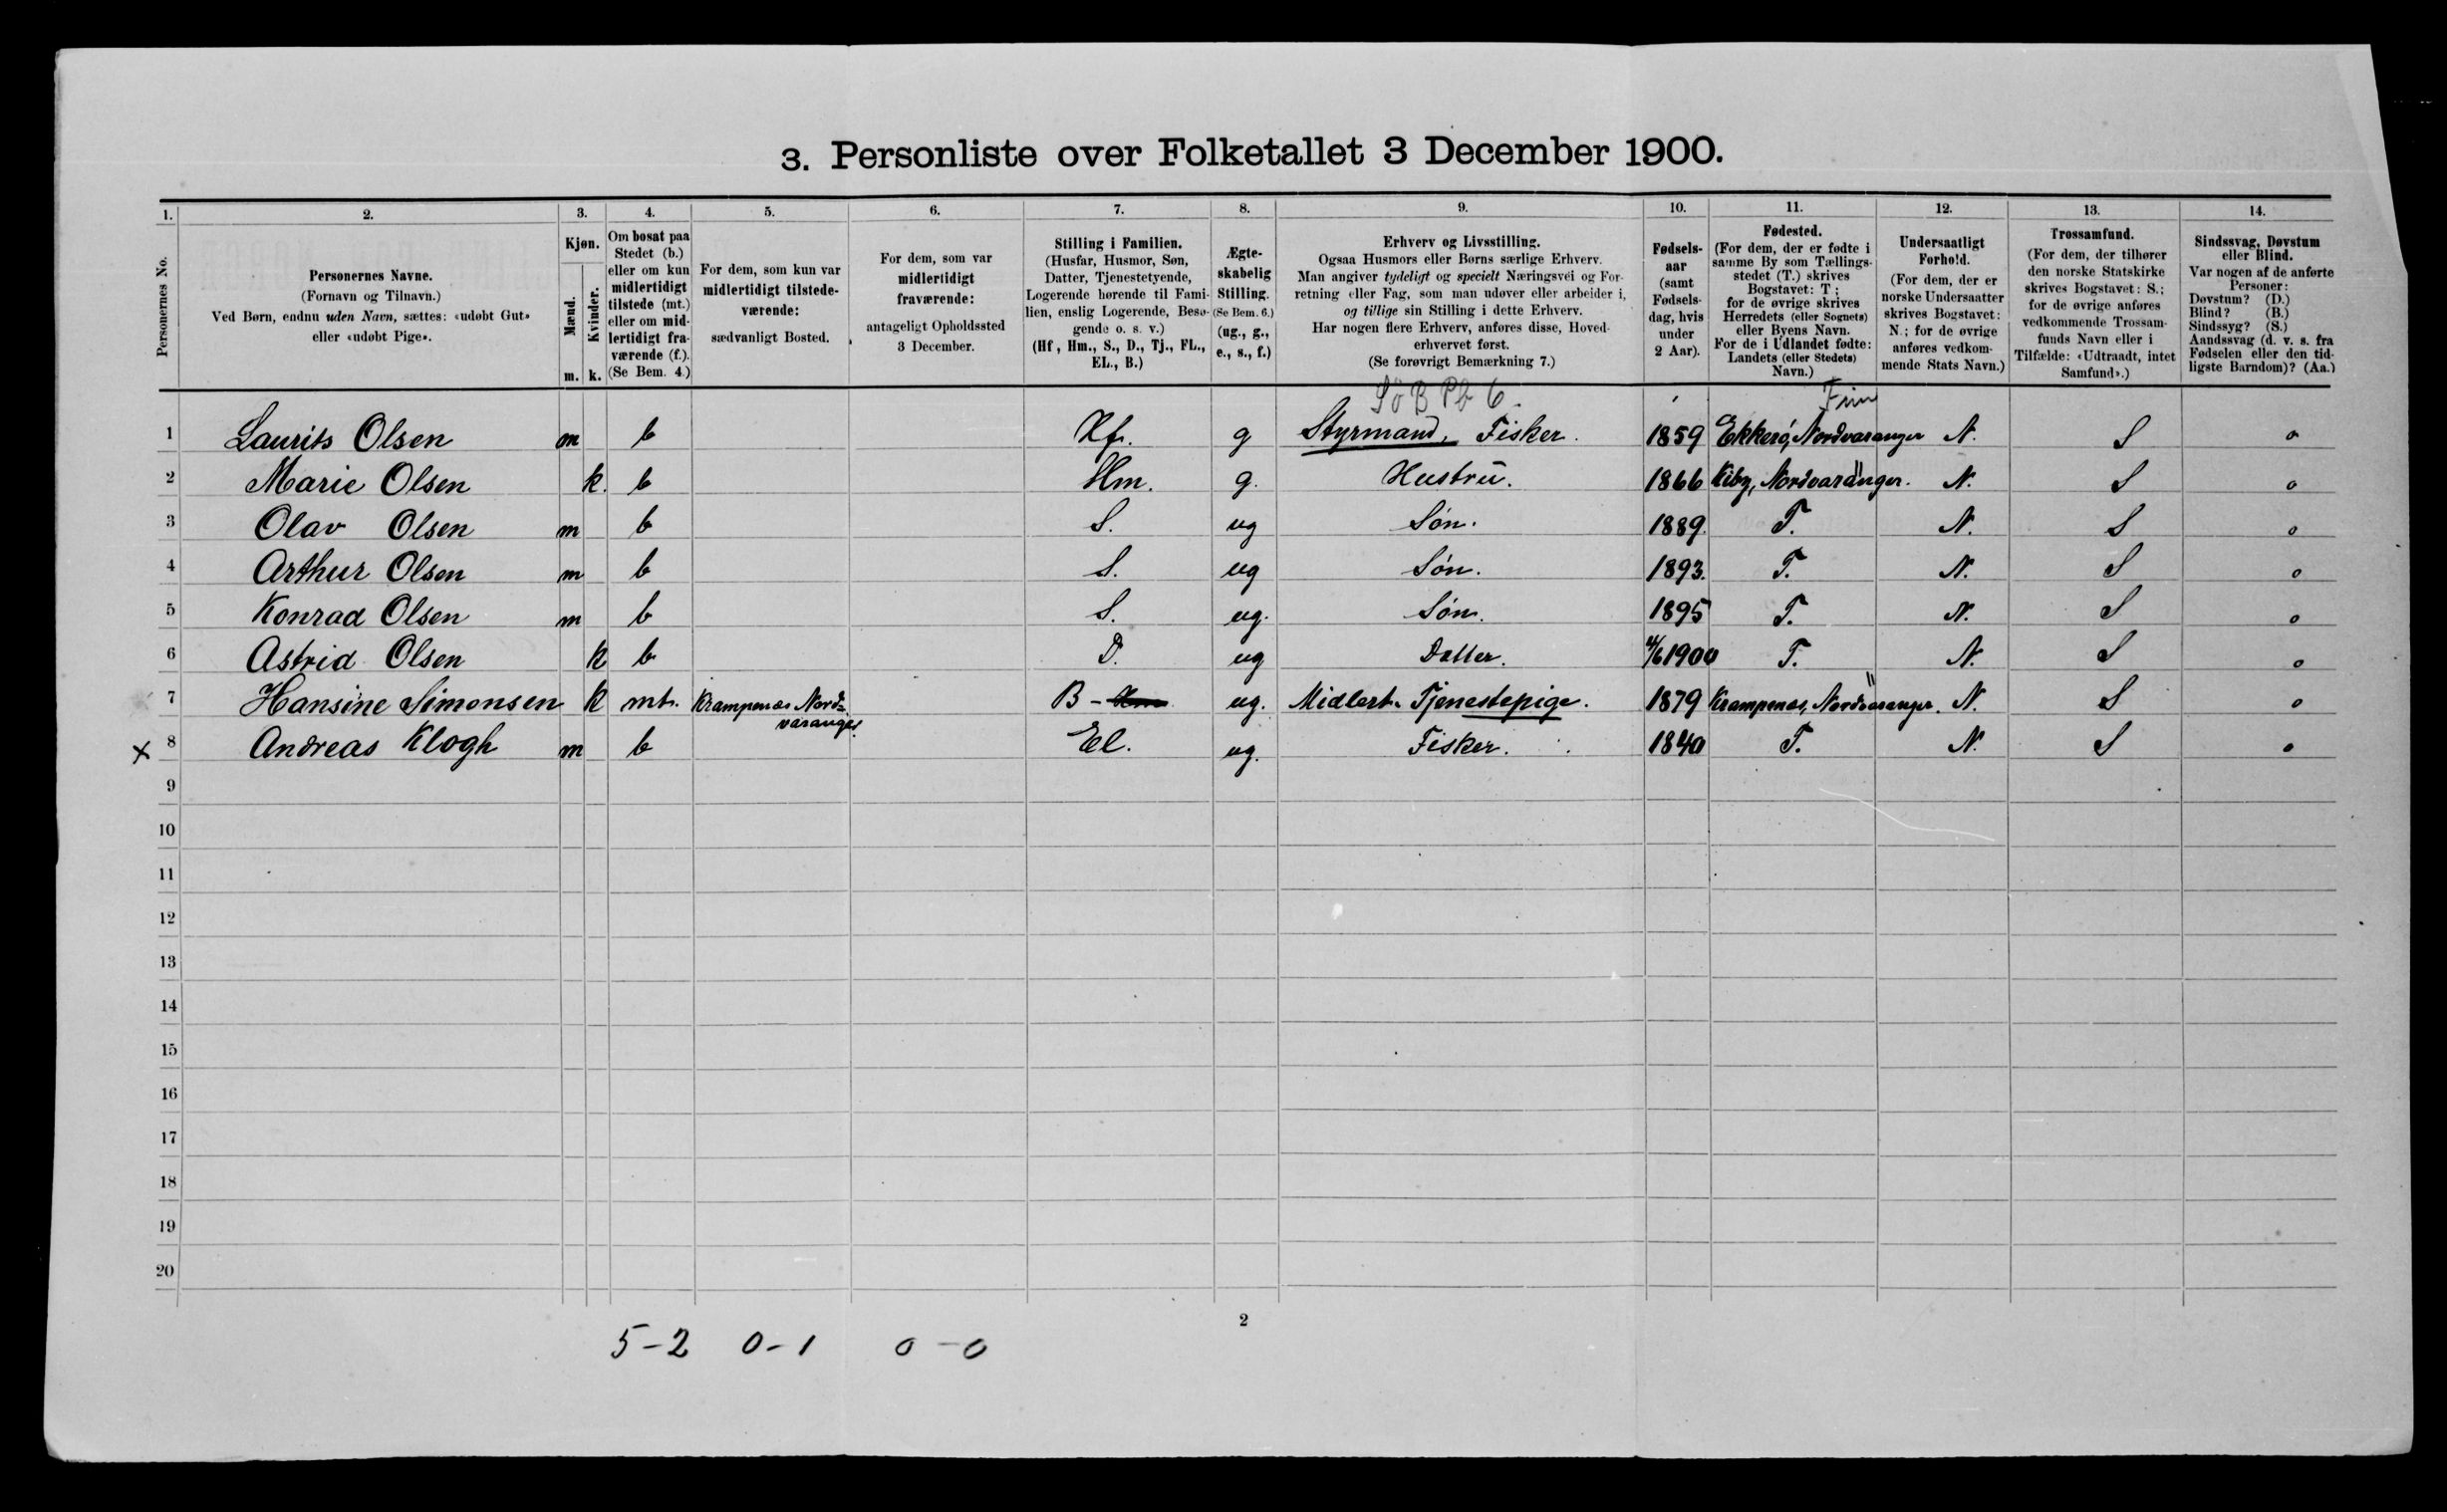 3. Personliste over Folketallet 3 December 1900.
1. 2. 3. 4. 5. 6. 7. 8. 9. 10. 11. 12. 13. 14.
Personernes No.
Personernes Navne.
(Fornavn og Tilnavn.)
Ved Børn, endnu uden Navn, sættes: «udøbt Gut»
eller «udøbt Pige».
Kjøn.
Mænd.
Kvinder.
m. k.
Om bosat paa
Stedet (b.)
eller om kun
midlertidigt
tilstede (mt.)
eller om mid-
lertidigt fra-
værende (f.).
(Se Bem. 4.)
For dem, som kun var
midlertidigt tilstede-
værende:
sædvanligt Bosted.
For dem, som var
midlertidigt
fraværende:
antageligt Opholdssted
3 December.
Stilling i Familien.
(Husfar, Husmor, Søn,
Datter, Tjenestetyende,
Logerende hørende til Fami-
lien, enslig Logerende, Besø-
gende o. s. v.)
(Hf, Hm., S., D., Tj., FL.,
EL., B.)
Ægte-
skabelig
Stilling.
(Se Bem. 6.)
(ug., g.,
e., s., f.)
Erhverv og Livsstilling.
Ogsaa Husmors eller Børns særlige Erhverv.
Man angiver tydeligt og specielt Næringsvei og For-
retning eller Fag, som man udøver eller arbeider i,
og tillige sin Stilling i dette Erhverv.
Har nogen flere Erhverv, anføres disse, Hoved-
erhvervet først.
(Se forøvrigt Bemærkning 7.)
Fødsels-
aar
(samt
Fødsels-
dag, hvis
under
2 Aar).
Fødested.
(For dem, der er fødte i
samme By som Tællings-
stedet (T.) skrives
Bogstavet: T;
for de øvrige skrives
Herredets (eller Sognets)
eller Byens Navn.
For de i Udlandet fødte:
Landets (eller Stedets)
Navn.)
Undersaatligt
Forhold.
(For dem, der er
norske Undersaatter
skrives Bogstavet:
N.; for de øvrige
anføres vedkom-
mende Stats Navn.)
Trossamfund.
(For dem, der tilhører
den norske Statskirke
skrives Bogstavet: S.;
for de øvrige anføres
vedkommende Trossam-
funds Navn eller i
Tilfælde: «Udtraadt, intet
Samfund».)
Sindssvag, Døvstum
eller Blind.
Var nogen af de anførte
Personer:
Døvstum? (D.)
Blind? (B.)
Sindssyg? (S.)
Aandssvag (d. v. s. fra
Fødselen eller den tid-
ligste Barndom)? (Aa.)
B 6 Finn
1 Laurits Olsen m b Hf. g Styrmand, Fisker. 1859 Ekkerö, Nordvaranger N. S o
2 Marie Olsen k. b Hm. g. Hustru. 1866 Kiby, Nordvaranger. N. S o
3 Olav Olsen m b S. ug Søn. 1889. T. N. S o
4 Arthur Olsen m b S. ug Søn. 1893. T. N. S o
5 Konrad Olsen m b S. ug. Søn. 1895 T. N. S o
6 Astrid Olsen k b D. ug Datter. 1900 T. N. S o
7 Hansine Simonsen k mt. Krampenæs Nord- B - ug. Midlert. Tjenestepige. 1879 Krampenæs, Nordvaranger. N. S o
varanger.
x 8 Andreas Klogh m b El. ug. Fisker. 1840 T. N. S o
9
10
11
12
13
14
15
16
17
18
19
20
2
5-2 0-1 0-0